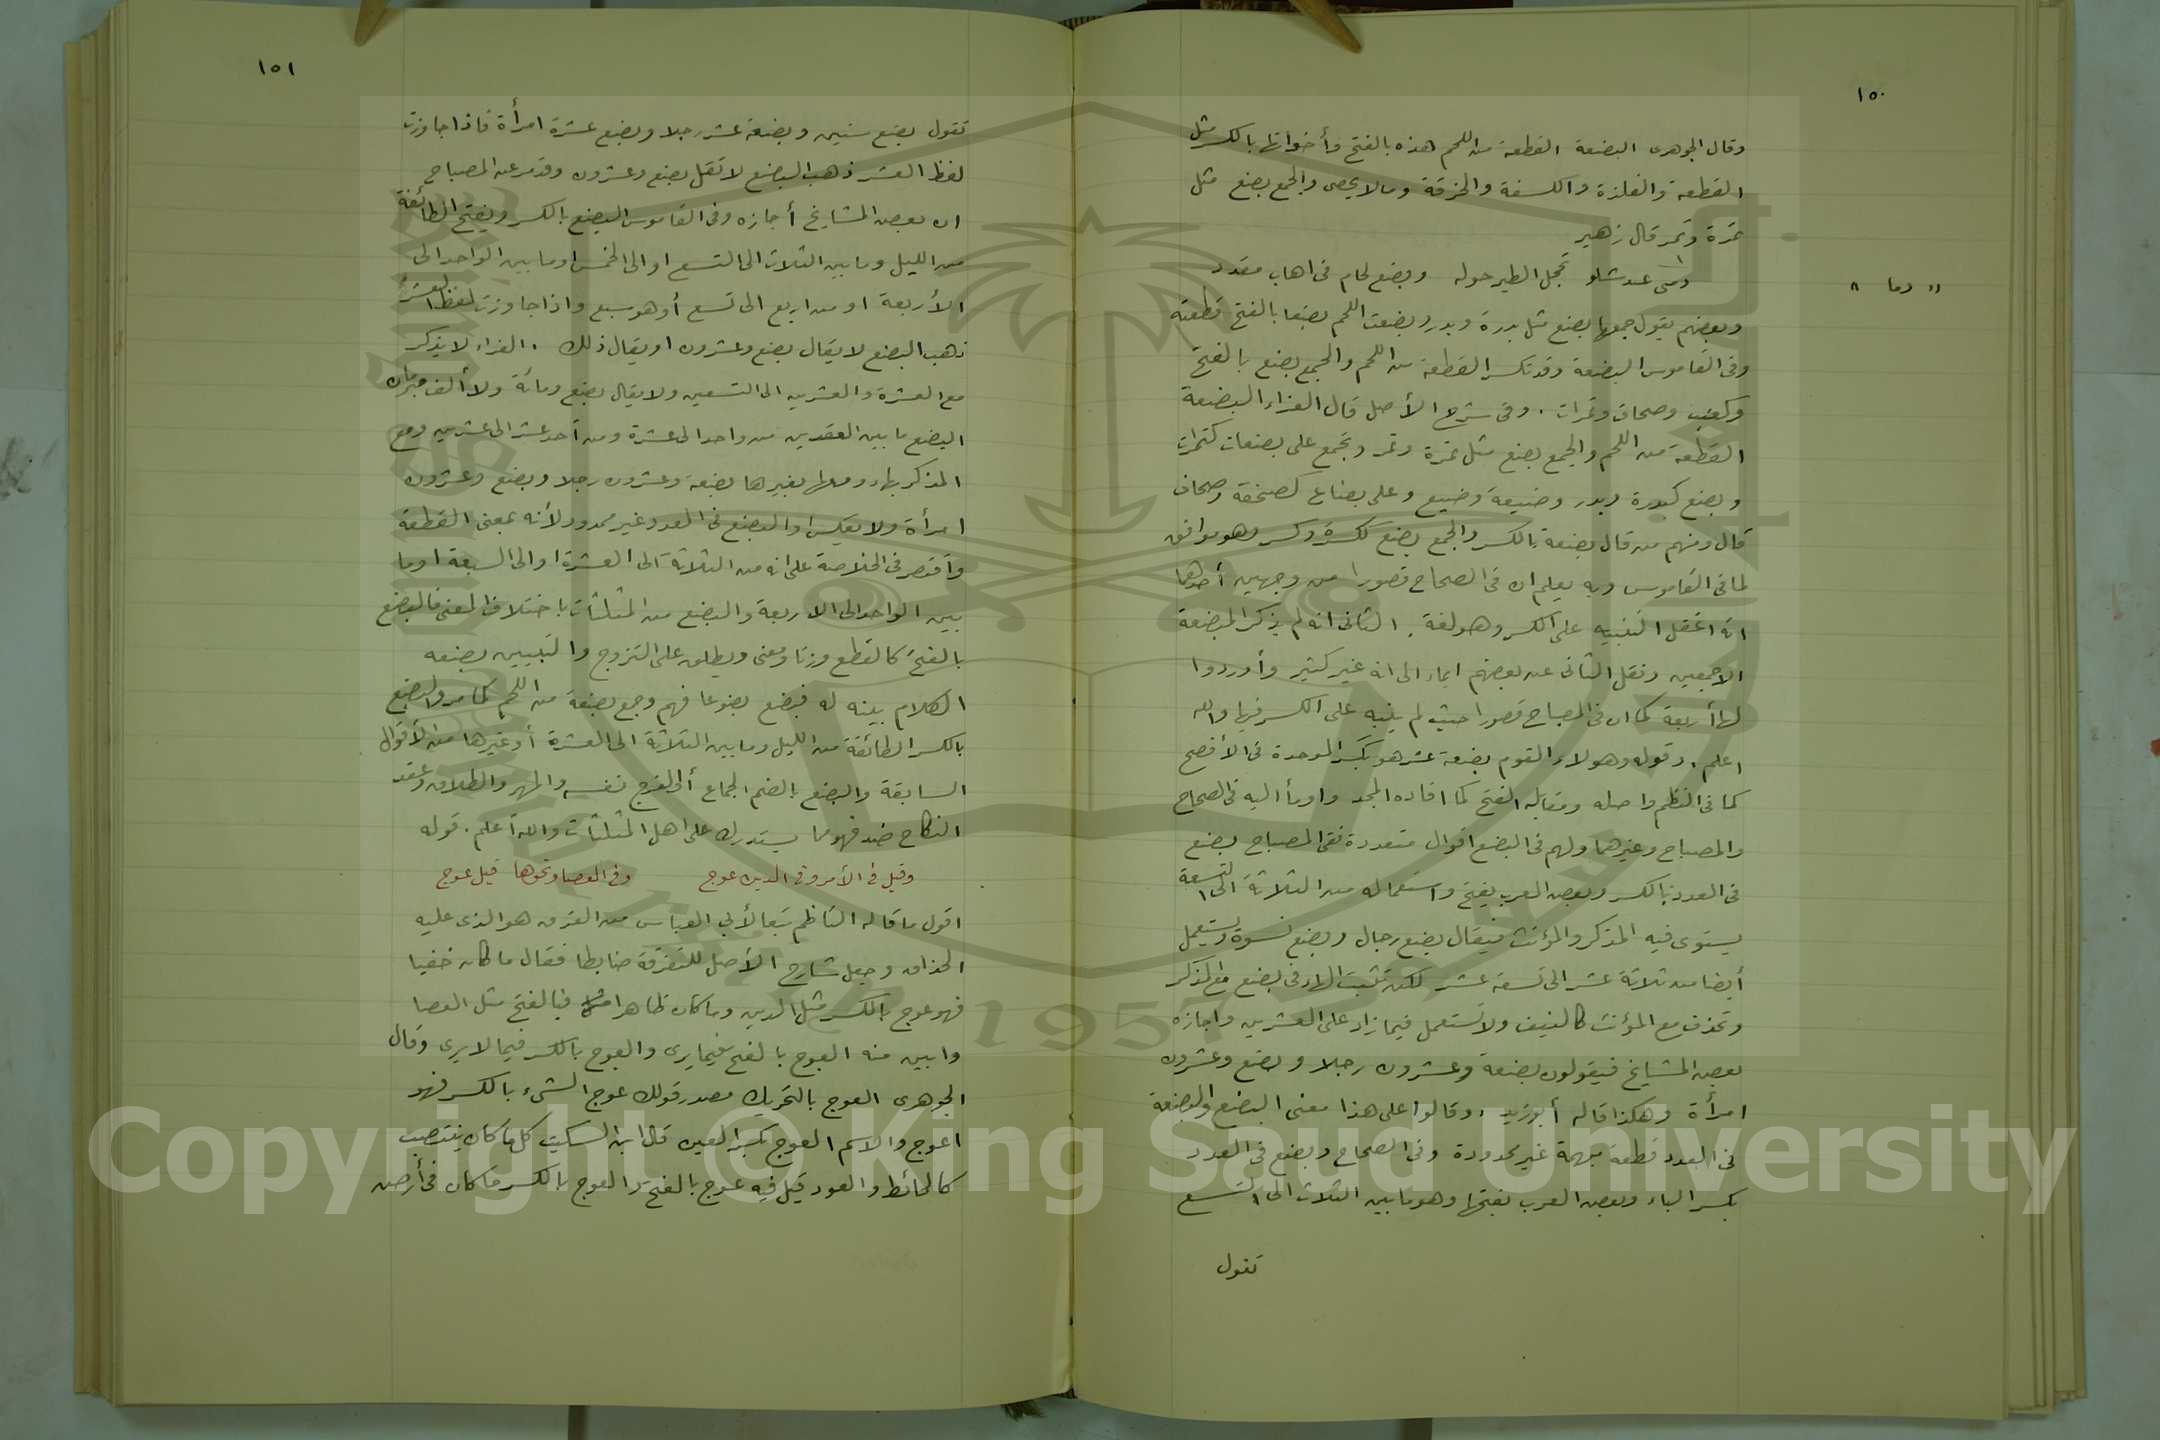 ١٥٠
وقال الجوهرى البضعة القطعة من اللحم هذه بالفتح وأخواتها بالكسر مثل
القطعة والفلذة والكسفة والخرقة وما لا يحصى والجمع بضع مثل
تمرة وتمر قال زهير
دمى عند شلو تحجل الطير حوله وبضع لحام فى اهاب مقدد
" دما "
وبعضهم يقول جمعها بضع مثل بدرة وبدر وبضعت اللحم بضعا بالفتح قطعته
وفى القاموس البضعة وقد تكسر القطعة من اللحم والجمع بضع بالفتح
وكعنب وصحاف وتمرات . وفى شرح الأصل قال الفراء البضعة
القطعة من اللحم والجمع بضع مثل تمرة وتمر وتجمع على بضعات كتمرات
وبضع كبدرة وبدر وضيعة وضيع وعلى بضاع كصحفة وصحاف
قال ومنهم من قال بضعة بالكسر والجمع بضع ككسرة وكسر وهو موافق
لما فى القاموس وبه يعلم ان فى الصحاح قصورا من وجهين أحدهما
انه اغفل التنبيه على الكسر وهو لغة . الثانى انه لم يذكر للبضعة
الا جمعين ونقل الثانى عن بعضهم ايماء الى انه غير كثير وأوردوا
لها أربعة كما ان فى المصباح قصورا حيث لم ينبه على الكسر فيها والله
اعلم . وقوله وهولاء القوم بضعة عشر هو بكسر الموحدة فى الأفصح
كما فى النظم واصله ومقابله الفتح كما افاده المجد واومأ اليه فى الصحاح
والمصباح وغيرهما ولهم فى البضع اقوال متعددة ففى المصباح بضع
فى العدد بالكسر وبعض العرب يفتح واستعماله من الثلاثة الى التسعة
يستوى فيه المذكر والمؤنث فيقال بضع رجال وبضع نسوة ويستعمل
أيضا من ثلاثة عشر الى تسعة عشر لكن تثبت الهاء فى بضع مع المذكر
وتحذف مع المؤنث كالنيف ولا تستعمل فيما زاد على العشرين واجازه
بعض المشايخ فيقولون بضعة وعشرون رجلا وبضع وعشرون
امرأة وهكذا قاله أبو زيد . وقالوا على هذا معنى البضع والبضعة
فى العدد قطعة مبهمة غير محدودة وفى الصحاح وبضع فى العدد
بكسر الباء وبعض العرب يفتحها وهو ما بين الثلاث الى التسع
تقول
١٥١
تقول بضع سنين وبضعة عشر رجلا وبضع عشرة امرأة فاذا جاوزت
لفظ العشر ذهب البضع لا تقل بضع وعشرون وقد مر عن المصباح
ان بعض المشايخ أجازه وفى القاموس البضع بالكسر ويفتح الطائفة
من الليل وما بين الثلاث الى التسع او الى الخمس او ما بين الواحد الى
الأربعة او من اربع الى تسع أو هو سبع واذا جاوزت لفظ العشر
ذهب البضع لا يقال بضع وعشرون او يقال ذلك . الفراء لا يذكر
مع العشرة والعشرين الى التسعين ولا يقال بضع ومائة ولا ألف مبرمان
البضع ما بين العقدين من واحد الى عشرة ومن أحد عشر الى عشرين ومع
المذكر بهاء ومعها بغيرها بضعة وعشرون رجلا وبضع وعشرون
امرأة ولا يعكس او البضع فى العدد غير محدود لأنه بمعنى القطعة
واقتصر فى الخلاصة على انه من الثلاثة الى العشرة او الى السبعة او ما
بين الواحد الى الاربعة والبضع من المثلثات باختلاف المعنى فالبضع
بالفتح كالقطع وزنا ومعنى ويطلق على التزوج والتبيين بضعه
الكلام بينه له فبضع بضوعا فهم وجمع بضعة من اللحم كما مر والبضع
بالكسر الطائفة من الليل وما بين الثلاثة الى العشرة أو غيرها من الأقوال
السابقة والبضع بالضم الجماع أو الفرج نفسه والمهر والطلاق وعقد
النكاح ضد فهو مما يستدرك على اهل المثلثات والله أعلم . قوله
وقيل فى الأمر وفى الدين عوج وفى العصا ونحوها قيل عوج
اقول ما قاله الناظم تبعا لأبى العباس من الفرق هو الذى عليه
الحذاق وجعل شارح الأصل للتفرقة ضابطا فقال ما كان خفيا
فهو عوج بالكسر مثل الدين وما كان ظاهرا فبالفتح مثل العصا
وابين منه العوج بالفتح فيما يرى والعوج بالكسر فيما لا يرى وقال
الجوهرى العوج بالتحريك مصدر قولك عوج الشىء بالكسر فهو
اعوج والاسم العوج بكسر العين قال ابن السكيت كل ما كان ينتصب
كالحائط والعود قيل فيه عوج بالفتح والعوج بالكسر ما كان فى أرض
Copyright © King Saud University
1957